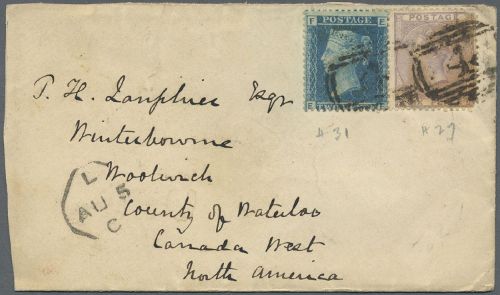 F POSTAGE E
E TWO E F
POSTAGE
# 31
# 27
T. H. Lanphier Esqr
Winterbourne
Woolwich
County of Waterloo
Canada West
North America
L
AU 5
C